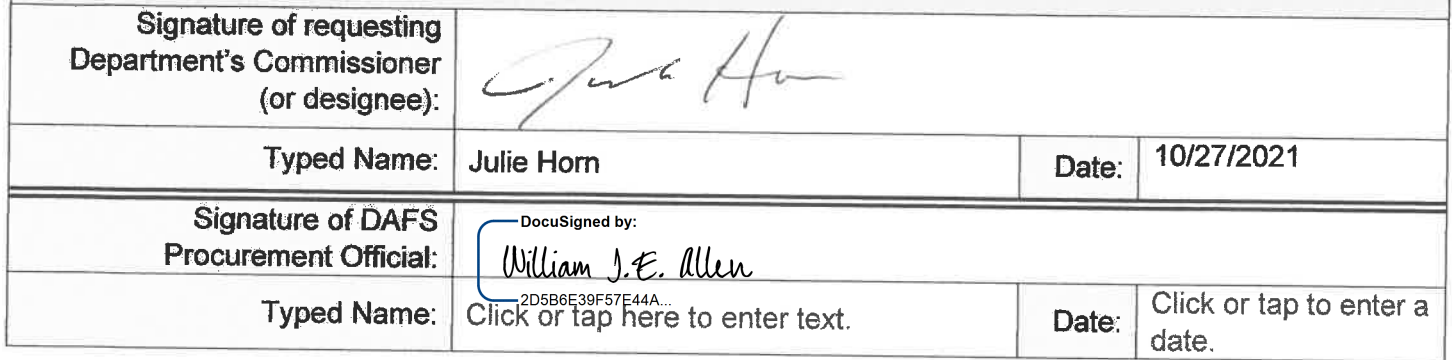 Signature of requesting
Department's Commissioner
(or designee):
Typed Name: Julie Horn Date: 10/27/2021
Signature of DAFS
Procurement Official:
DocuSigned by:
William J.E. Allen
2D5B6E39F57E44A...
Typed Name: Click or tap here to enter text. Date: Click or tap to enter a
date.